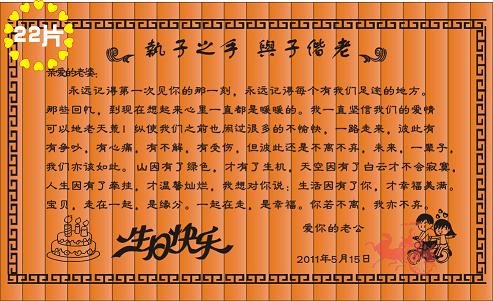 22片
執子之手 與子偕老
亲爱的老婆:
永远记得第一次见你的那一刻，永远记得每个有我们足迹的地方。
那些回忆，到现在想起来心里一直都是暖暖的。我一直坚信我们的爱情
可以地老天荒！纵使我们之前也闹过很多的不愉快，一路走来，彼此有
有争吵，有心痛，有不解，有受伤，但彼此还是不离不弃，未来，一辈子，
我们亦该如此。山因有了绿色，才有了生机，天空因有了白云才不会寂寞，
人生因有了牵挂，才温馨灿烂，我想对你说：生活因有了你，才幸福美满。
宝贝，走在一起，是缘分。一起在走，是幸福。你若不离，我亦不弃。
爱你的老公
生日快乐
2011年5月15日